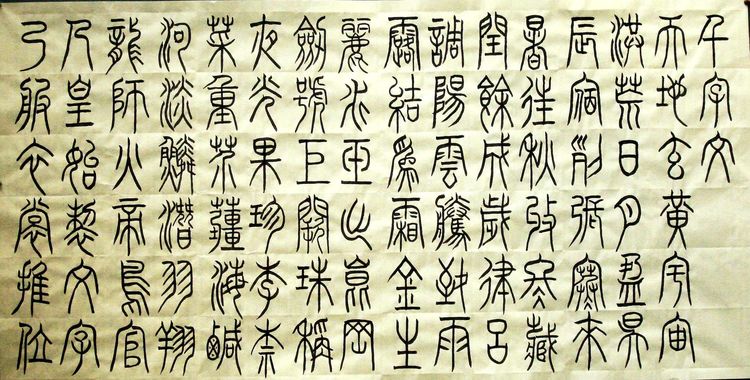 千字文
天地玄黃宇宙
洪荒日月盈昃
辰宿列張寒來
暑往秋收冬藏
閏餘成歲律呂
調陽雲騰致雨
露結為霜金生
麗水玉出崑岡
劍號巨闕珠稱
夜光果珍李柰
菜重芥薑海鹹
河淡鱗潛羽翔
龍師火帝鳥官
人皇始制文字
乃服衣裳推位